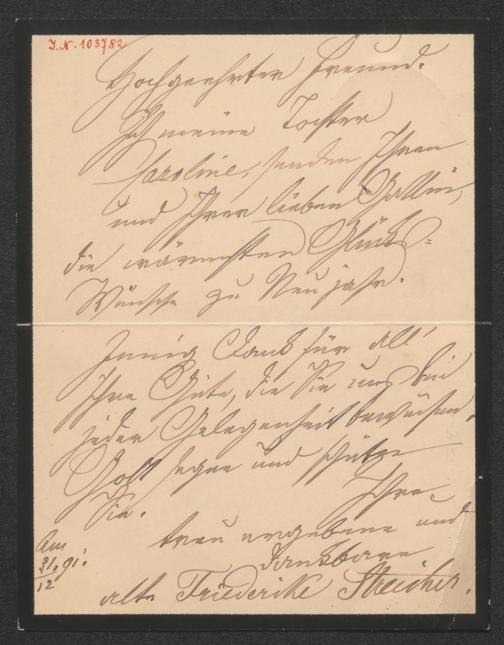 I. N. 103782
Hochgeehrter Freund.
Ich meine Tochter
Caroline, senden Ihnen
und Ihrer lieben Gattin,
die wärmsten Glücks=
Wünsche zu Neujahr.
Innig Dank für all'
Ihre Güte, die Sie uns bei
jeder Gelegenheit bewiesen,
Gott segne und schütze
Sie.
Ihre
treu ergebene und
dankbare
alte Friederike Streicher.
Am
31. 91.
12